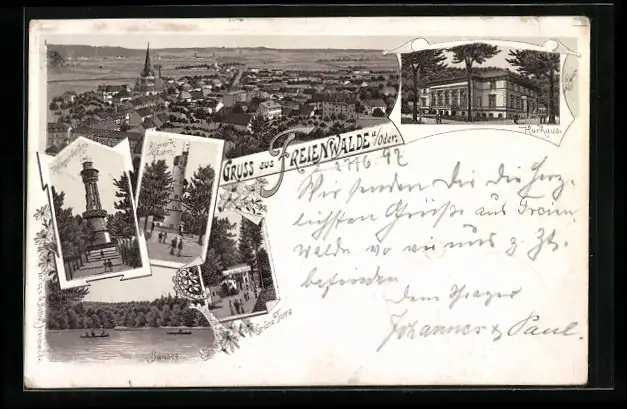 GRUSS aus FREIENWALDE a/Oder.
Kurhaus.
Bismark-
thurm.
Grüne Tanne
Baasee.
27/6. 97
Wir senden Dir die herz-
lichsten Grüße aus Freien-
walde wo wir uns z. Zt.
befinden
Johannes & Paul.